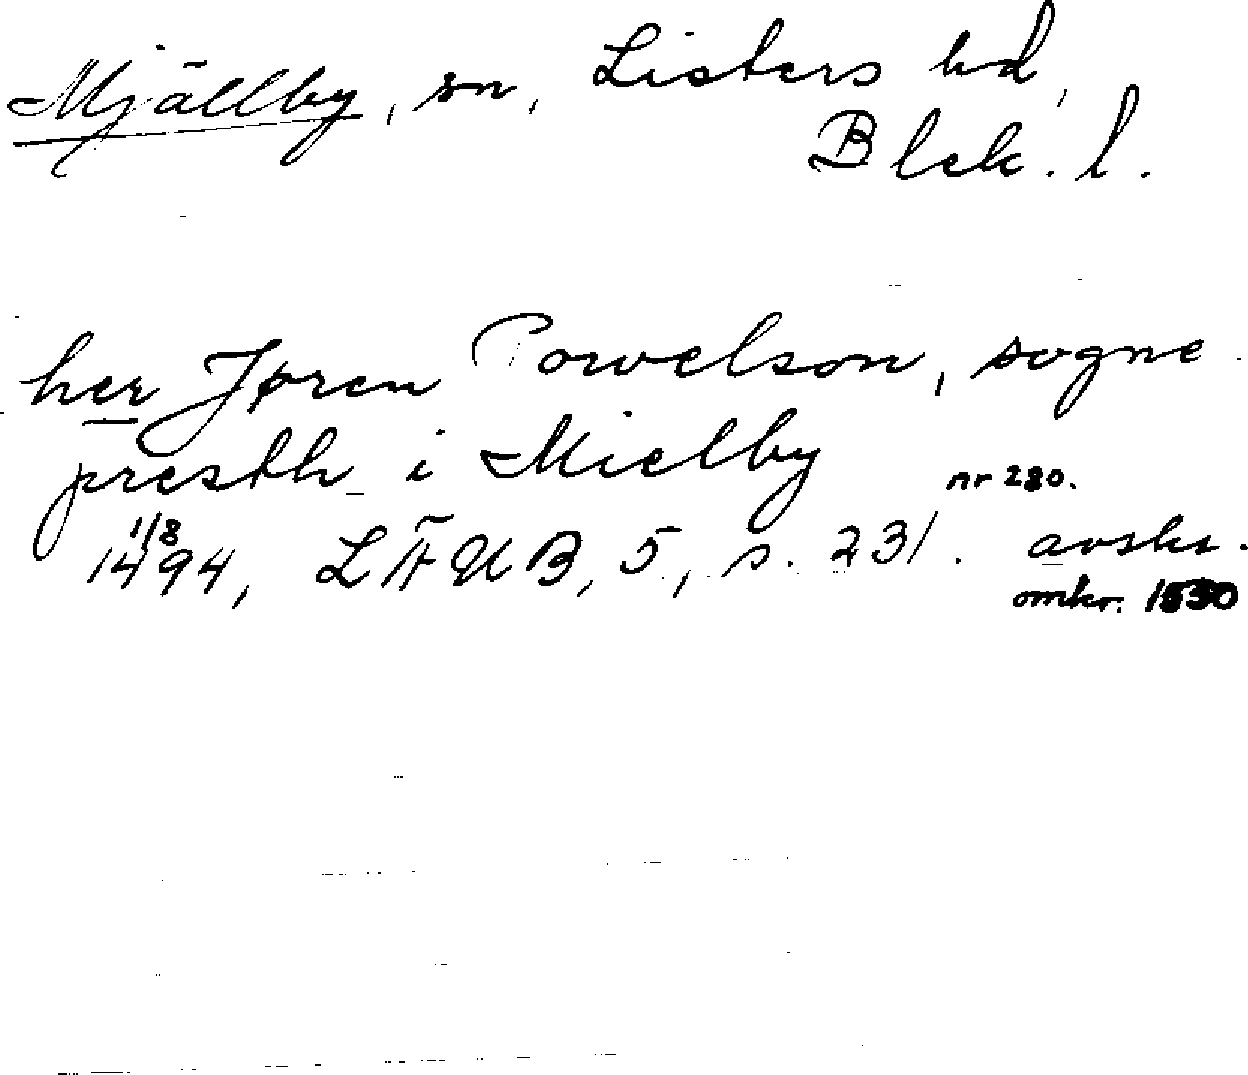 Mjällby, sn, Listers hd,
Blek. l.
her Jøren Powelson, sogne
presth i Mielby
nr 280.
1/8
1494, LÄUB, 5, s. 231. avskr.
omkr. 1550